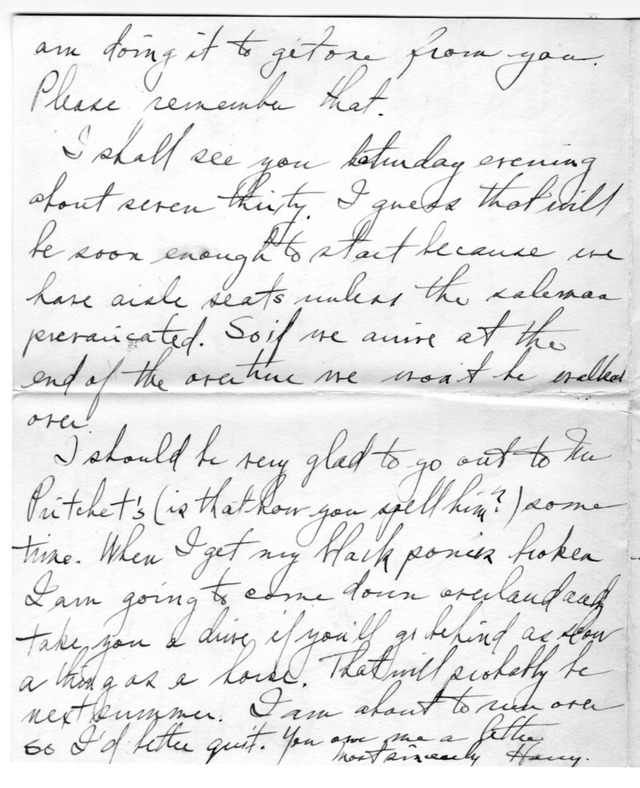 am doing it to get one from you.
Please remember that.
I shall see you Saturday evening
about seven thirty. I guess that will
be soon enough to start because we
have aisle seats unless the salesman
prevaricated. So if we arrive at the
end of the overture we won't be walked
over.
I should be very glad to go out to Mr
Pritchet's (is that how you spell him?) some
time. When I get my black ponies broken
I am going to come down overland and
take you a drive if you'll go behind as slow
a thing as a horse. That will probably be
next summer. I am about to run over
so I'd better quit. You owe me a letter
Most sincerely Harry.